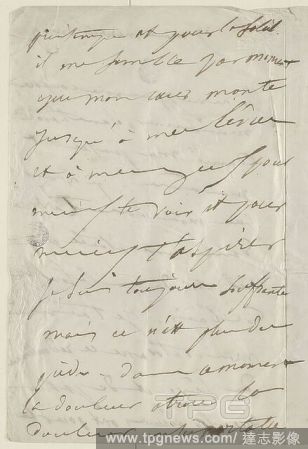 printemps et pour le soleil
il me semble par moment
que mon cœur monte
jusqu'à mes lèvres
et à mes yeux pour
mieux te voir et pour
mieux t'aspirer
Je suis toujours souffrante
mais ce n'est plus du
dans ce moment
la douleur atroce la
douleur
TPG
www.tpgnews.com/達志影像